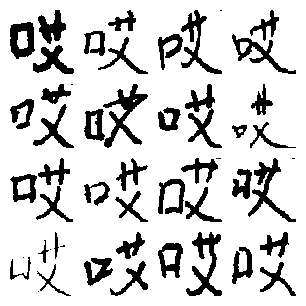 哎哎哎哎
哎哎哎哎
哎哎哎哎
哎哎哎哎